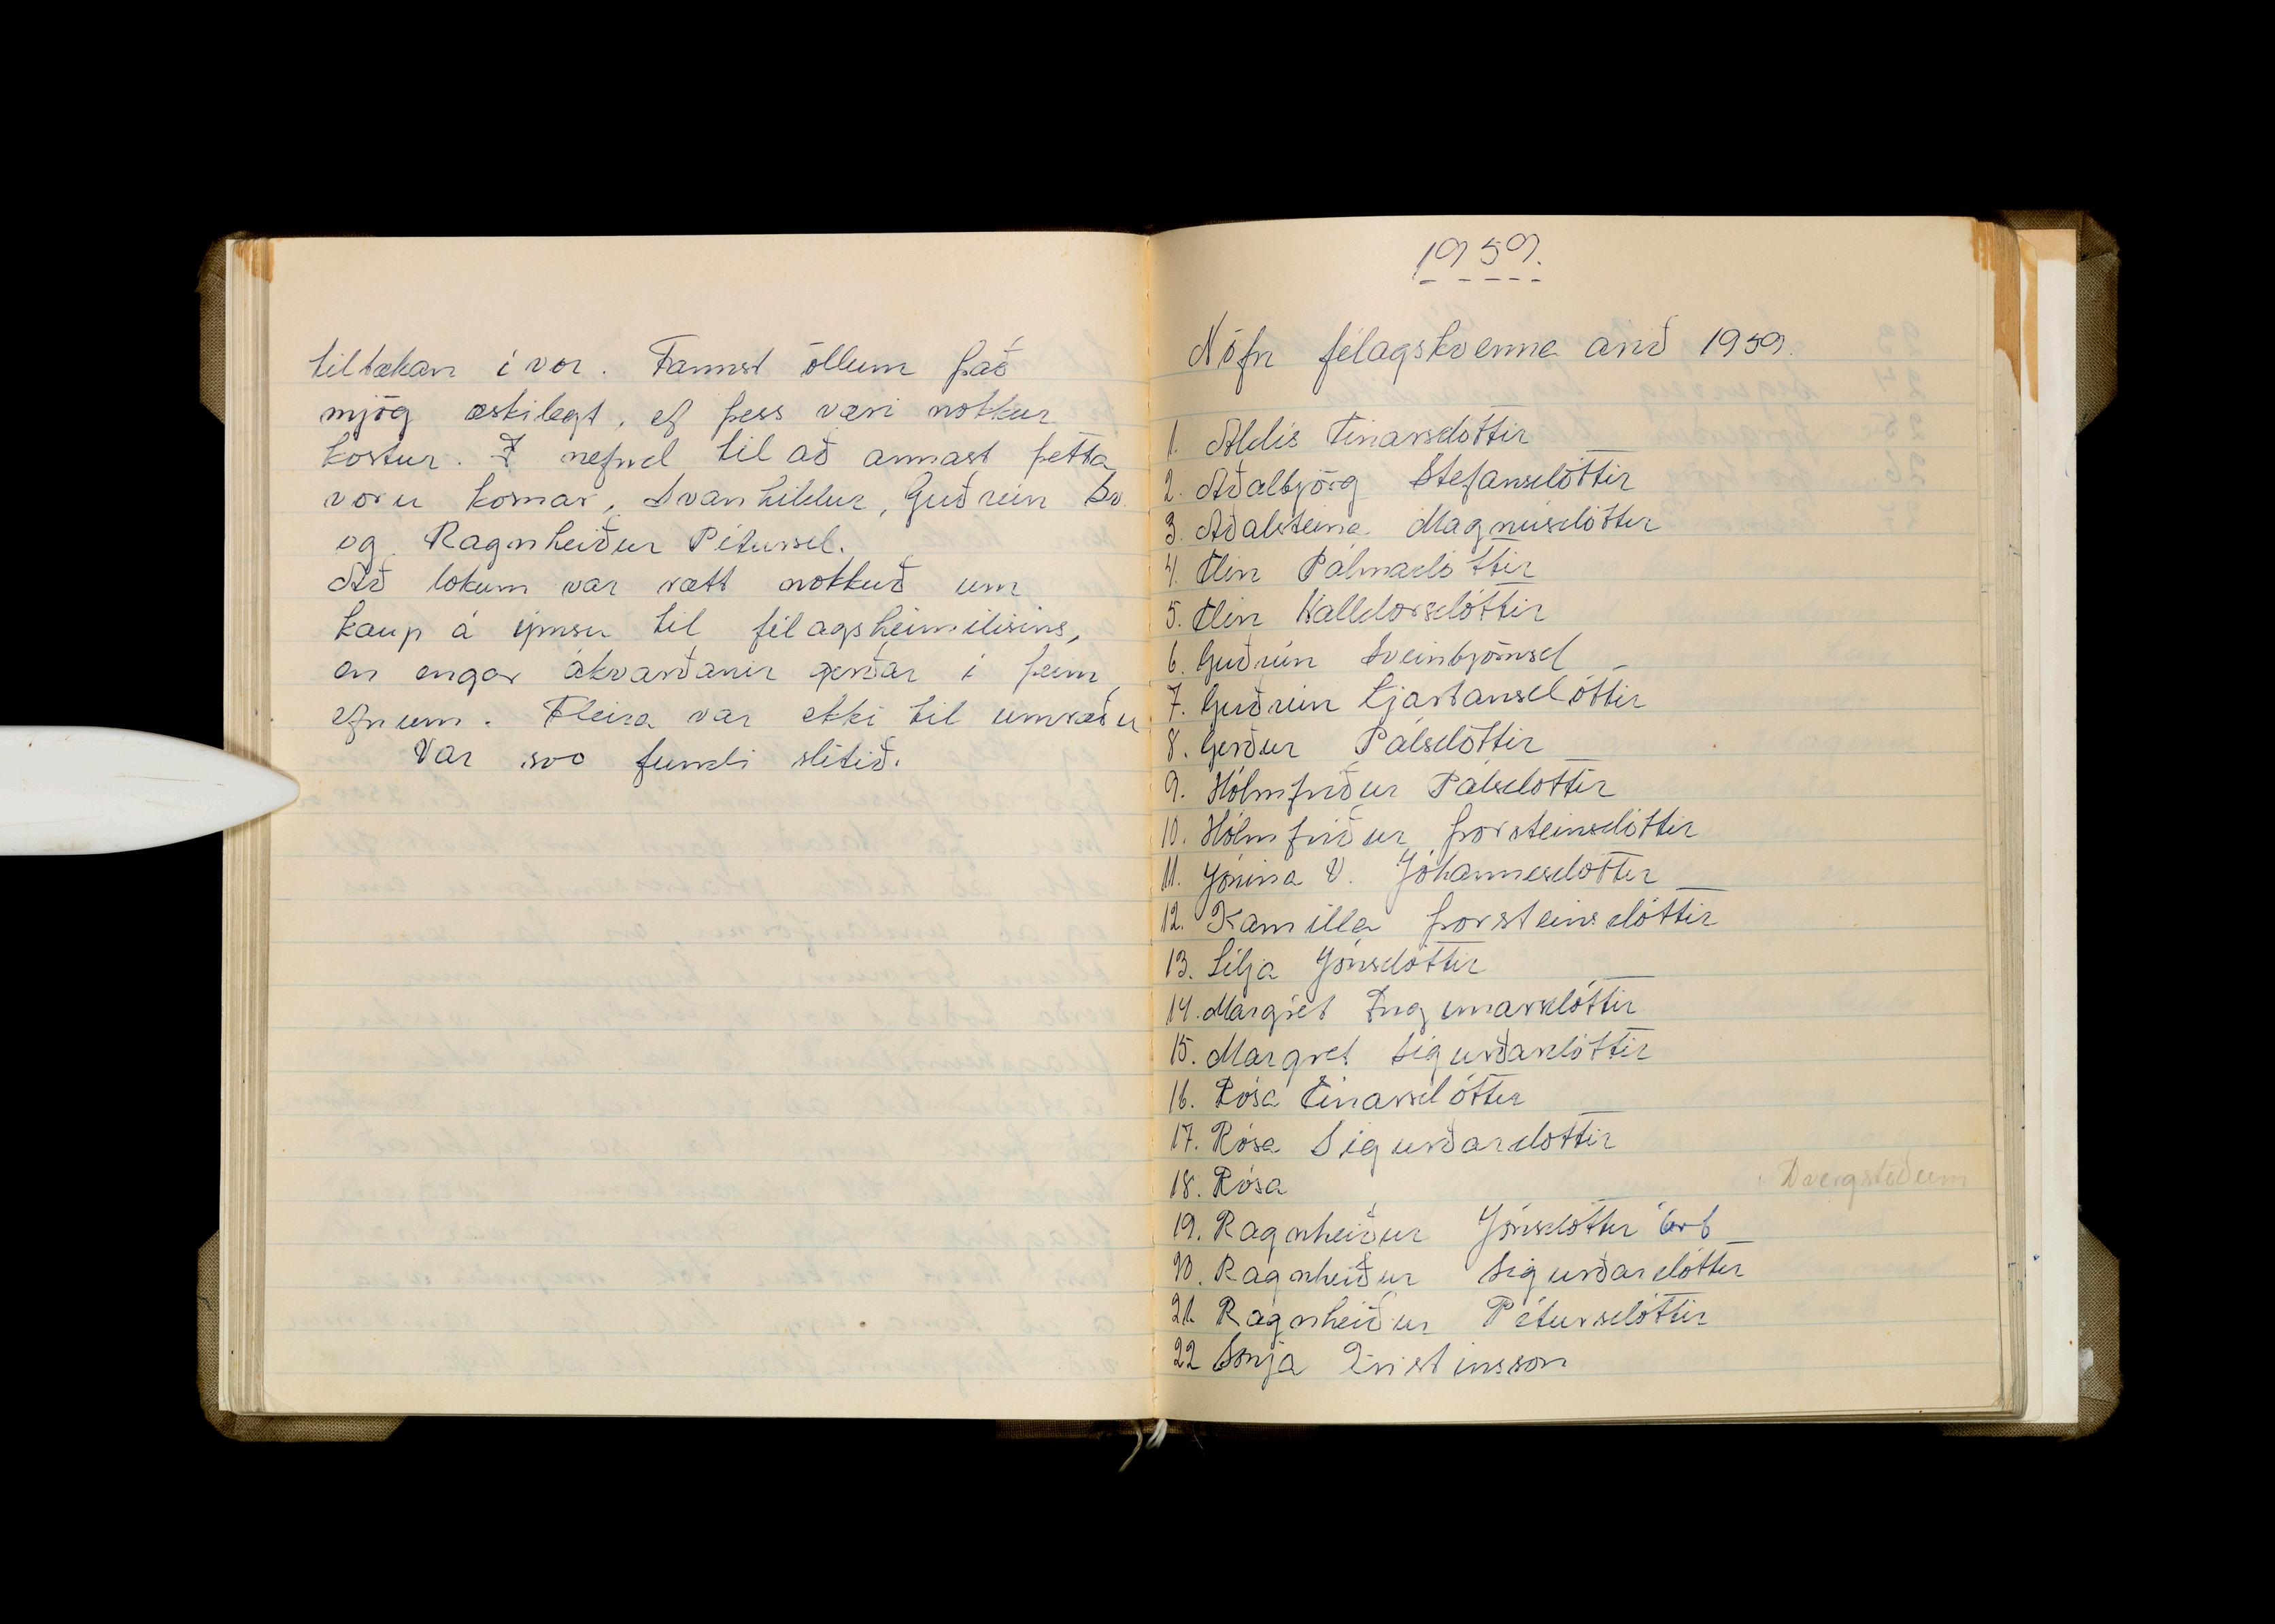 tiltækan í vor. Fannst öllum það
mjög æskilegt, ef þess væri nokkur
kostur. Í nefnd til að annast þetta
voru kosnar, Svanhildur, Guðrún Sv.
og Ragnheiður Pétursd.
Að lokum var rætt nokkuð um
kaup á ýmsu til félagsheimilisins,
en engar ákvarðanir gerðar í þeim
efnum. Fleira var ekki til umræðu
Var svo fundi slitið.
1959.
Nöfn félagskvenna árið 1959.
1. Aldís Einarsdóttir
2. Aðalbjörg Stefansdóttir
3. Aðalsteina Magnúsdóttir
4. Elin Pálmadóttir
5. Elin Halldorsdóttir
6. Guðrún Sveinbjörnsd
7. Guðrún Kjartansdóttir
8. Gerður Pálsdóttir
9. Hólmfríður Pálsdottir
10. Hólmfríður Þorsteinsdóttir
11. Jónína V. Jóhannesdottir
12. Kamilla Þorsteinsdóttir
13. Lilja Jónsdóttir
14. Margrét Ingimarsdóttir
15. Margret Sigurðardóttir
16. Rósa Einarsdóttir
17. Rósa Sigurðardottir
18. Rósa Dvergstöðum
19. Ragnheiður Jónsdóttir
20. Ragnheiður Sigurðardóttir
21. Ragnheiður Pétursdóttir
22 Sonja Kristinsson